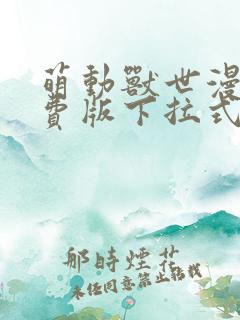 萌動獸世漫
費版下拉式
那時煙花
未经同意禁止转载